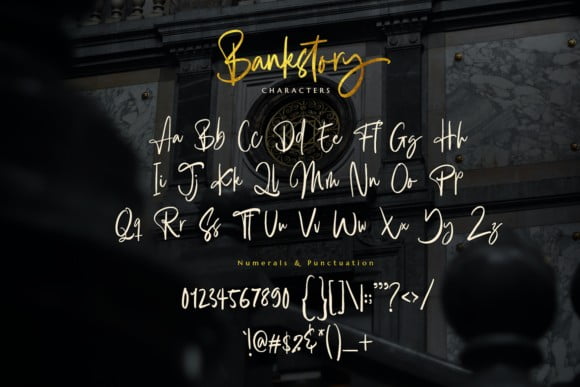 Bankstory
CHARACTERS
Aa Bb Cc Dd Ee Ff Gg Hh
Ii Jj Kk Ll Mm Nn Oo Pp
Qq Rr Ss Tt Uu Vv Ww Xx Yy Zz
Numerals & Punctuation
01234567890 {}[]\|:;"',?<>/
`!@#$%&*()_+